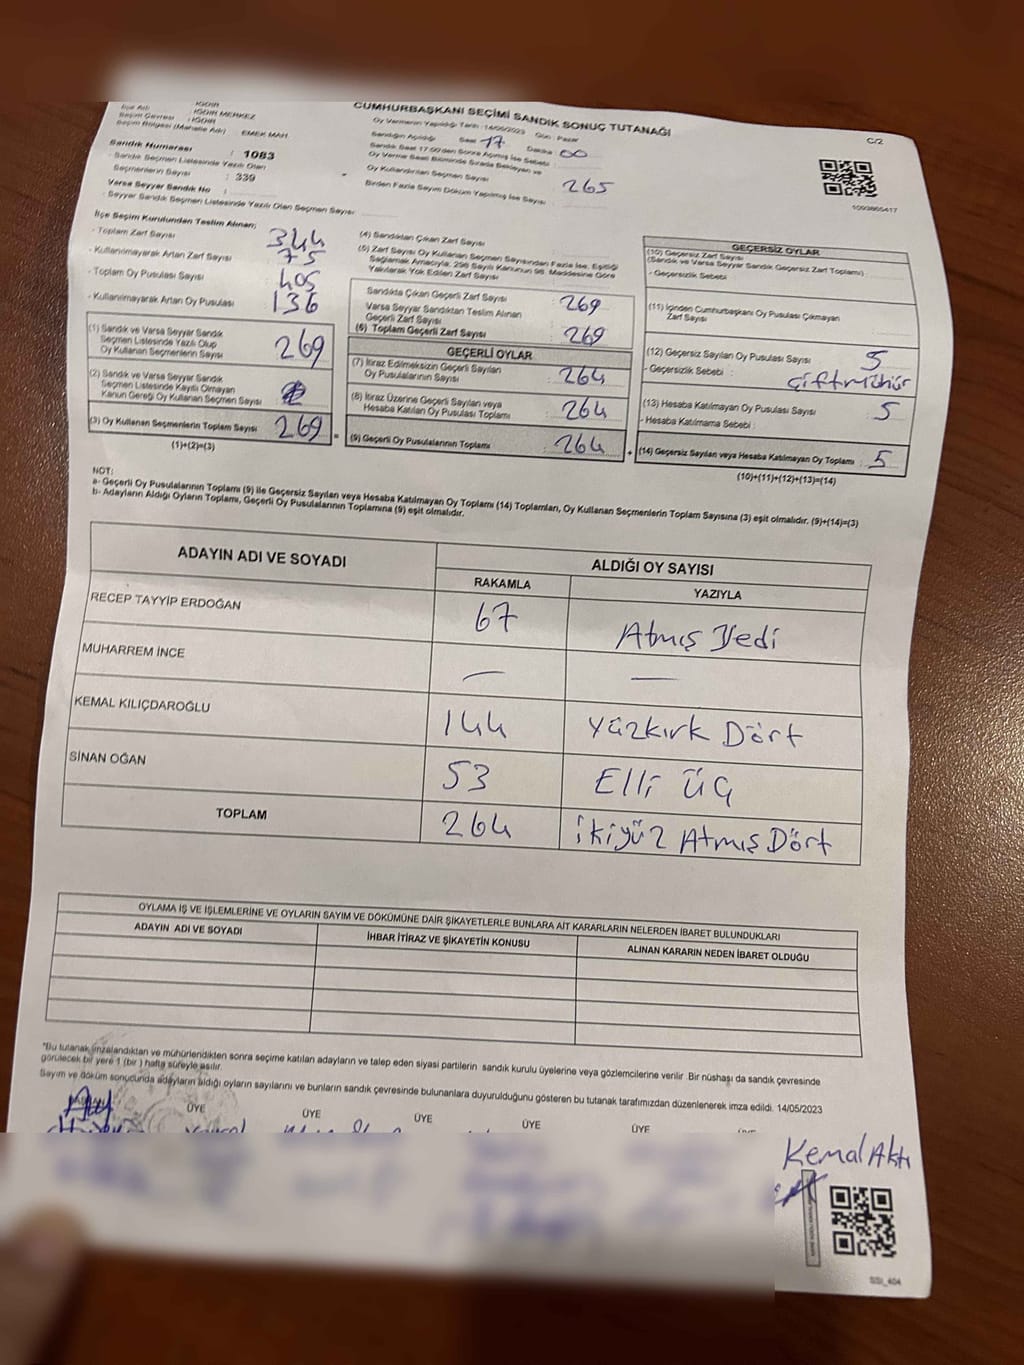 IĞDIR
İlçe Adı : IĞDIR MERKEZ
Seçim Çevresi : IĞDIR
Seçim Bölgesi (Mahalle Adı) EMEK MAH.
Sandık Numarası : 1083
- Sandık Seçmen Listesinde Yazılı Olan
Seçmenlerin Sayısı : 339
Varsa Seyyar Sandık No :
- Seyyar Sandık Seçmen Listesinde Yazılı Olan Seçmen Sayısı
CUMHURBAŞKANI SEÇİMİ SANDIK SONUÇ TUTANAĞI
Oy Vermenin Yapıldığı Tarih :14/05/2023 Gün : Pazar
Sandığın Açıldığı Saat 17 Dakika : 00
Sandık Saat 17:00'den Sonra Açılmış İse Sebebi :
Oy Verme Saati Bitiminde Sırada Bekleyen ve
Oy Kullandırılan Seçmen Sayısı
265
Birden Fazla Sayım Döküm Yapılmış İse Sayısı :
C/2
1093865417
İlçe Seçim Kurulundan Teslim Alınan;
- Toplam Zarf Sayısı 344
- Kullanılmayarak Artan Zarf Sayısı 75
- Toplam Oy Pusulası Sayısı 405
- Kullanılmayarak Artan Oy Pusulası 136
(1) Sandık ve Varsa Seyyar Sandık
Seçmen Listesinde Yazılı Olup
Oy Kullanan Seçmenlerin Sayısı 269
(2) Sandık ve Varsa Seyyar Sandık
Seçmen Listesinde Kayıtlı Olmayan
Kanun Gereği Oy Kullanan Seçmen Sayısı
(3) Oy Kullanan Seçmenlerin Toplam Sayısı 269
(1)+(2)=(3)
(4) Sandıktan Çıkan Zarf Sayısı
(5) Zarf Sayısı Oy Kullanan Seçmen Sayısından Fazla İse, Eşitliği
Sağlamak Amacıyla; 298 Sayılı Kanunun 98. Maddesine Göre
Yakılarak Yok Edilen Zarf Sayısı
Sandıkta Çıkan Geçerli Zarf Sayısı : 269
Varsa Seyyar Sandıktan Teslim Alınan
Geçerli Zarf Sayısı
(6) Toplam Geçerli Zarf Sayısı : 269
GEÇERLİ OYLAR
(7) İtiraz Edilmeksizin Geçerli Sayılan
Oy Pusulalarının Sayısı : 264
(8) İtiraz Üzerine Geçerli Sayılan veya
Hesaba Katılan Oy Pusulası Toplamı : 264
= (9) Geçerli Oy Pusulalarının Toplamı : 264 +
GEÇERSİZ OYLAR
(10) Geçersiz Zarf Sayısı
(Sandık ve Varsa Seyyar Sandık Geçersiz Zarf Toplamı)
- Geçersizlik Sebebi :
(11) İçinden Cumhurbaşkanı Oy Pusulası Çıkmayan
Zarf Sayısı
(12) Geçersiz Sayılan Oy Pusulası Sayısı : 5
- Geçersizlik Sebebi : Çiftmühür
(13) Hesaba Katılmayan Oy Pusulası Sayısı : 5
- Hesaba Katılmama Sebebi :
(14) Geçersiz Sayılan veya Hesaba Katılmayan Oy Toplamı : 5
(10)+(11)+(12)+(13)=(14)
NOT:
a- Geçerli Oy Pusulalarının Toplamı (9) ile Geçersiz Sayılan veya Hesaba Katılmayan Oy Toplamı (14) Toplamları, Oy Kullanan Seçmenlerin Toplam Sayısına (3) eşit olmalıdır. (9)+(14)=(3)
b- Adayların Aldığı Oyların Toplamı, Geçerli Oy Pusulalarının Toplamına (9) eşit olmalıdır.
ADAYIN ADI VE SOYADI ALDIĞI OY SAYISI
RAKAMLA YAZIYLA
RECEP TAYYİP ERDOĞAN 67 Atmış Yedi
MUHARREM İNCE — —
KEMAL KILIÇDAROĞLU 144 Yüzkırk Dört
SİNAN OĞAN 53 Elli ÜÇ
TOPLAM 264 İkiyüz Atmış Dört
OYLAMA İŞ VE İŞLEMLERİNE VE OYLARIN SAYIM VE DÖKÜMÜNE DAİR ŞİKAYETLERLE BUNLARA AİT KARARLARIN NELERDEN İBARET BULUNDUKLARI
ADAYIN ADI VE SOYADI İHBAR İTİRAZ VE ŞİKAYETİN KONUSU ALINAN KARARIN NEDEN İBARET OLDUĞU
*Bu tutanak imzalandıktan ve mühürlendikten sonra seçime katılan adayların ve talep eden siyasi partilerin sandık kurulu üyelerine veya gözlemcilerine verilir. Bir nüshası da sandık çevresinde
görülecek bir yere 1 (bir ) hafta süreyle asılır.
Sayım ve döküm sonucunda adayların aldığı oyların sayılarını ve bunların sandık çevresinde bulunanlara duyurulduğunu gösteren bu tutanak tarafımızdan düzenlenerek imza edildi. 14/05/2023
ÜYE ÜYE ÜYE ÜYE ÜYE
Kemal Aktı
SSI_404